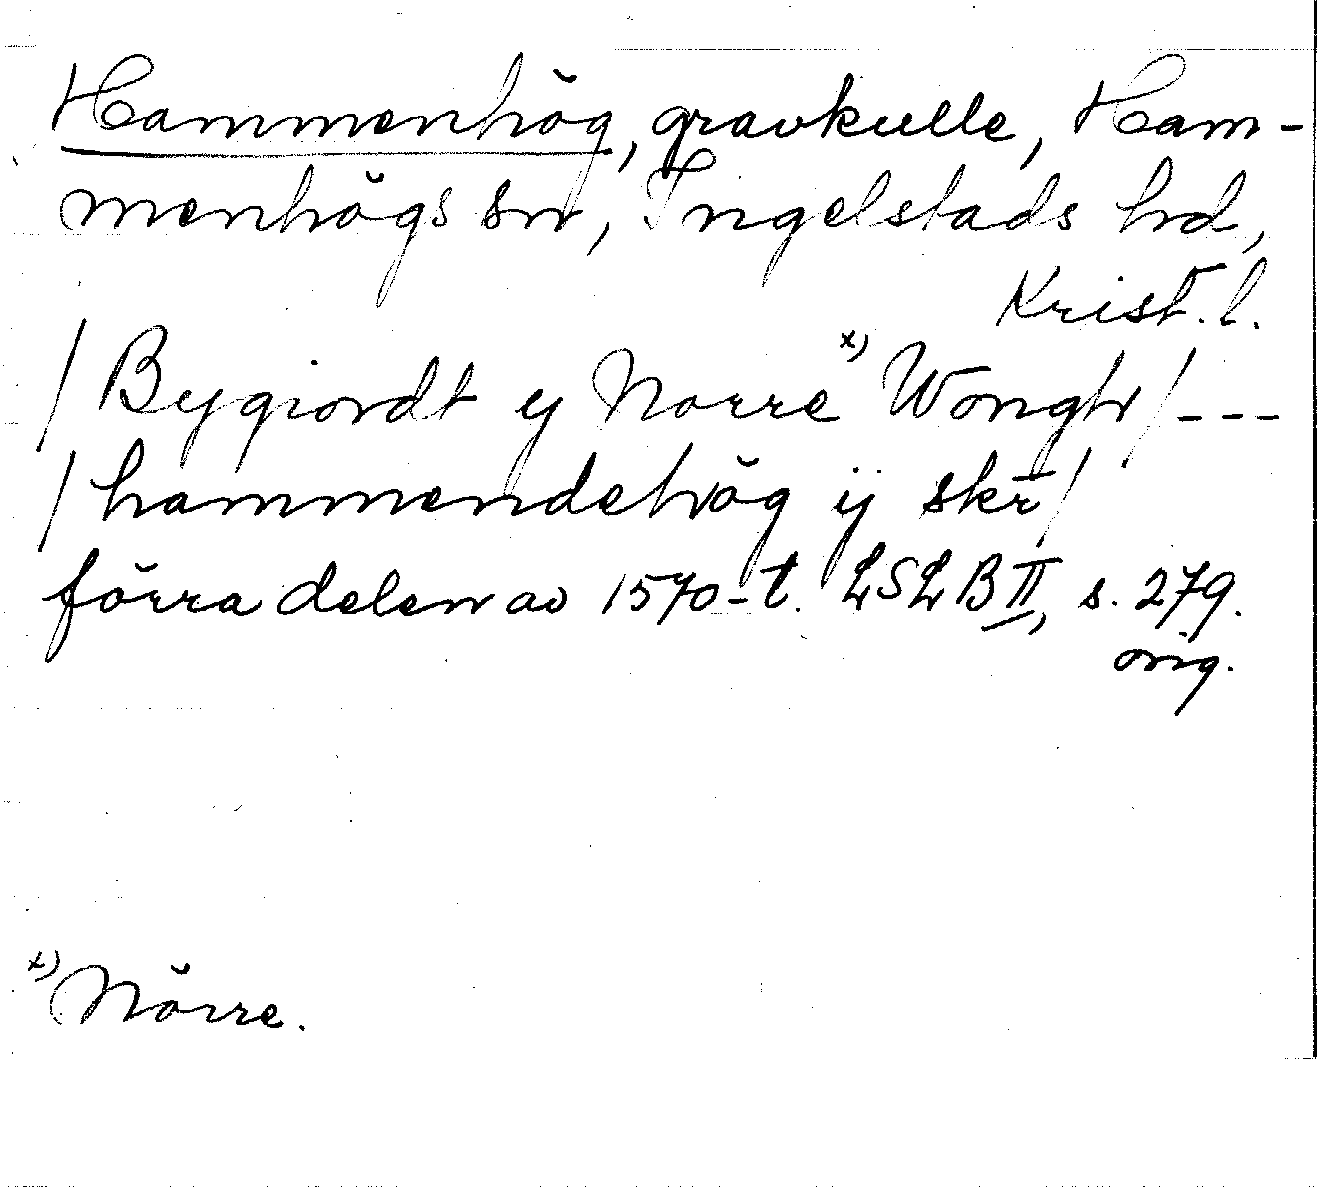 Hammenhög, gravkulle, Ham-
menhögs sn, Ingelstads hd,
Krist. l.
/Bygiordt ÿ Norre x) Wongh/---
/hammendehög ij skr/
förra delen av 1570-t. LSLB II, s. 279.
orig.
x) Nörre.